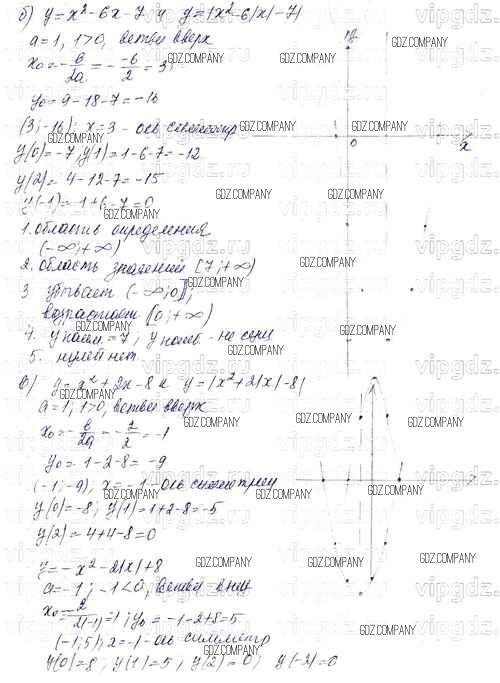 б) y = x² - 6x - 7 и y = |x² - 6|x| - 7|
a = 1, 1>0, ветви вверх
x₀ = -в/2a = - -6/2 = 3;
y₀ = 9 - 18 - 7 = -16
(3; -16); x = 3 - ось симметр
y(0) = -7, y(1) = 1 - 6 - 7 = -12
y(2) = 4 - 12 - 7 = -15
y(-1) = 1 + 6 - 7 = 0
1. область определения
(-∞; +∞)
2. область значений [7; +∞)
3 убывает (-∞; 0];
возрастает [0; +∞)
4. y наим = 7; y наиб. - не сущ
5. нулей нет
в) y = x² + 2x - 8 и y = |x² + 2|x| - 8|
a = 1; 1>0, ветви вверх
x₀ = -в/2a = -2/2 = -1
y₀ = 1 - 2 - 8 = -9
(-1; -9), x = -1 - ось симметрии
y(0) = -8; y(1) = 1 + 2 - 8 = -5
y(2) = 4 + 4 - 8 = 0
y = -x² - 2|x| + 8
a = -1; -1<0, ветви вниз
x₀ = 2/2(-1) = 1; y₀ = -1 - 2 + 8 = 5
(-1; 5), x = -1 - ось симметр
y(0) = 8; y(1) = 5; y(2) = 0; y(-2) = 0
y
0
x
GDZ.COMPANY
vipgdz.ru